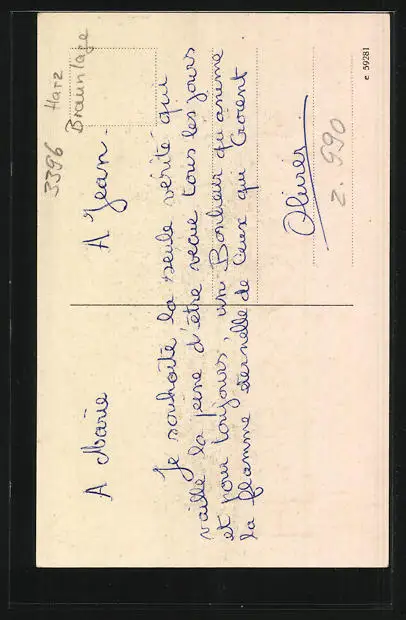 A Marie
A Jean.
Je souhaite la seule vérité qui
vaille la peine d'être vécue tous les jours
et pour toujours, un Bonheur qu'anime
la flamme éternelle de Ceux qui Croient
Olivier
3396 Harz
Braunlage
2.990
e 59281